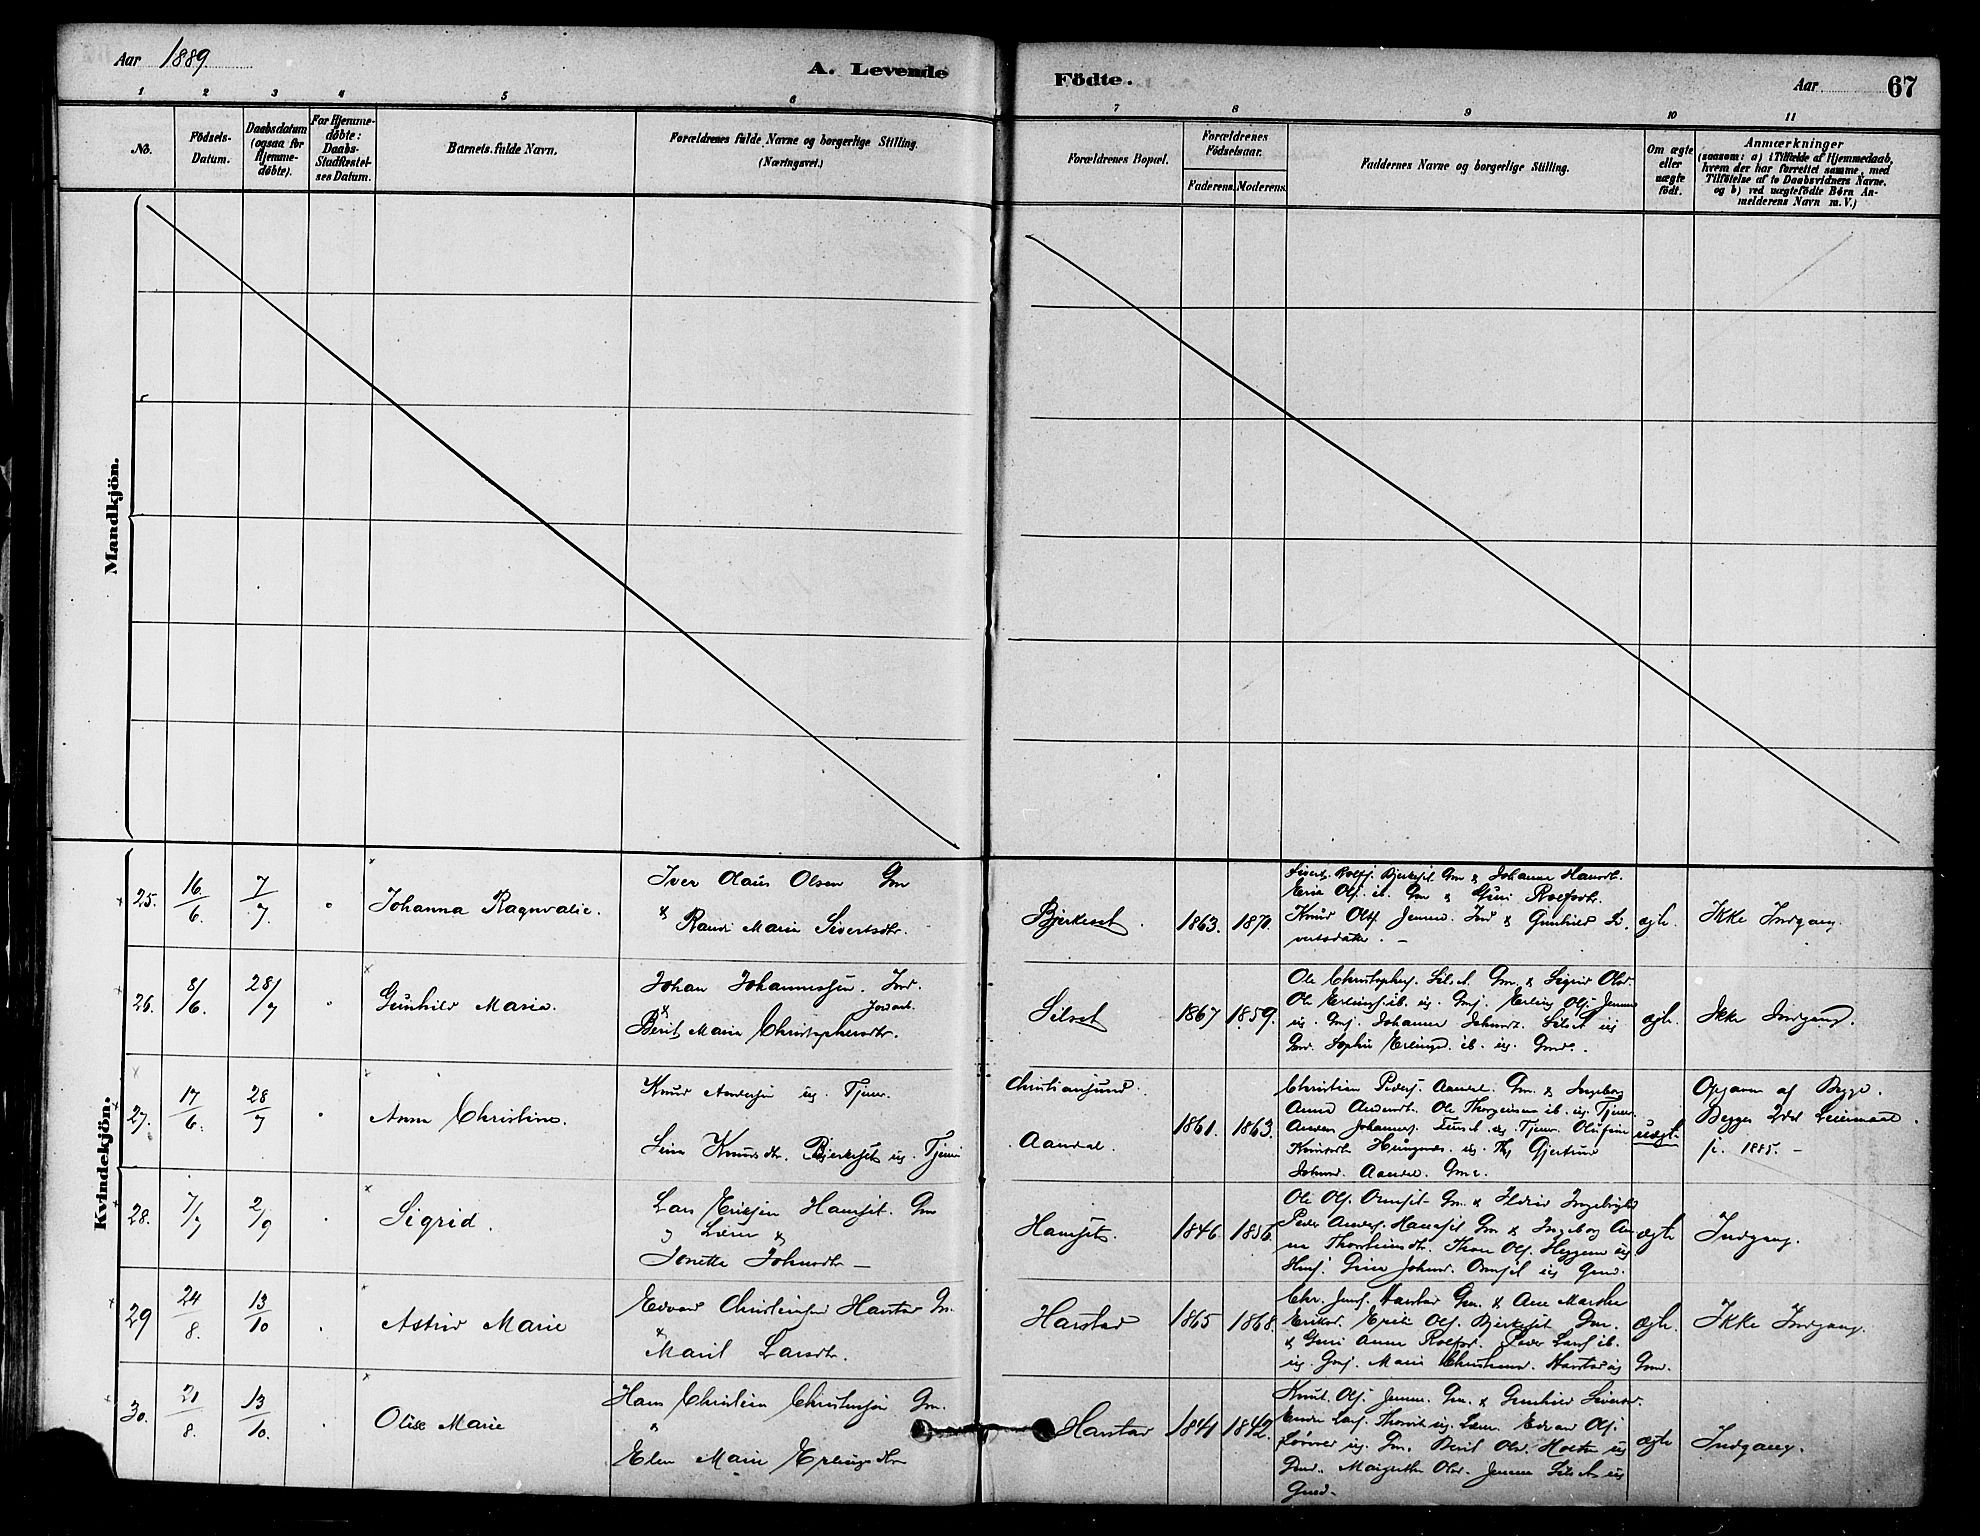 Aar 1889.
A. Levende
Födte.
Aar
67
1 2 3 4 5 6
7 8 9 10 11
No.
Födsels-
Datum.
Daabsdatum
(ogsaa for
Hjemme-
døbte).
For Hjemme-
døbte:
Daabs-
Stadfæstel-
ses Datum.
Barnets fulde Navn.
Forældrenes fulde Navne og borgerlige Stilling.
(Næringsvei.)
Forældrenes Bopæl.
Forældrenes
Födselsaar.
Faderens.
Moderens.
Faddernes Navne og borgerlige Stilling.
Om ægte
eller
uægte
født.
Anmærkninger
(saasom: a) i Tilfælde af Hjemmedaab,
hvem der har forrettet samme, med
Tilføielse af to Daabsvidners Navne.
og b) ved uægtefödte Börn An-
melderens Navn m. V.)
Mandkjön.
Kvindekjön.
25.
16/6
7/7
Johanna Ragnvalie.
Iver Olaus Olsen Gm
&
Randi Marie Sivertsdtr.
Bjerkeset
1863.
1870.
Sivert Rolfs. Bjerkeset Gm & Johanna Hansdt.
Erik Ols. ib. Gm & Guri Rolfsdtr.
Knud Ols. Jenna. Ind & Gunhild Si-
vertsdatter. -
ægte.
Ikke Indgang.
26.
8/6.
28/7
Gunhild Maria.
Johan Johannessen. Ind.
&
Berit Marie Christophersdtr.
Silset
1867
1859.
Ole Christophers. Silset Gm. & Sigrid Olsd.
Ole Erlings. ib. ug. Gms. Erling Ols. Jenna
ug. Gms. Johanna Johnsd. Silset ug
Gmd. Sophie Erlingsd. ib. ug. Gmd.
ægte.
Ikke Indgang.
27.
17/6.
28/7
Anna Christine.
Knud Andersen ug. Tjener.
Sina Knudsdtr. Bjerkeset ug. Tjener
Christiansund.
Aandal
1861.
1863.
Christian Peders. Aandal. Gm. & Ingeborg
Anna Andersdt. Ole Thorgeirsen ib. ug. Tjener.
Anders Johannes. ug. Tjener. Olufine
Knudsdt. ug. Gjertrud
Johnsd. Aandal. Gmd.
uægte.
Opgaven af Begge.
Begges 2det Leiermaal.
f. 1885. -
28.
7/7
2/9
Sigrid.
Lars Eriksen Hamset. Gm
og Lærer &
Jonetta Johnsdtr -
Hamset.
1846.
1856.
Ole Ols. Gm. & Ildrid Ingebrigtsd
Peder Anders. Hamset Gm & Ingeborg An-
na Thorsteinsdt. Thore Ols. Heggem ug
Hus. Guru Johnsd. ug Gmd.
ægte
Indgang.
29
24/8.
13/10
Astrid Marie
Edvard Christensen Harstad Gm.
&
Marit Larsdtr.
Harstad
1865
1868.
Chr. Jens. Harstad Gm. & Ane Marthe
Eriksd. Erik Ols. Bjerkeset Gm.
& Guri Anna Rolfsd. Peder Lars. ib.
ug. Gms. Marie Christensd. Harstad ug Gmd.
ægte.
Ikke Indgang.
30.
21/8.
13/10.
Olise Marie
Hans Christian Christensen Gm.
&
Elen Marie Erlingsdtr
Harstad
1841
1842.
Knut. Ols. Jenna. Gm. & Gunhild Sivertsd.
Endre Lars. Thorvik ug. Lærer. Edvard Ols.
ug. Gm. Berit Olsd. Holten ug
Gmd. Margrethe Olsd. Jenna Silset ug
Gmd.
ægte
Indgang.